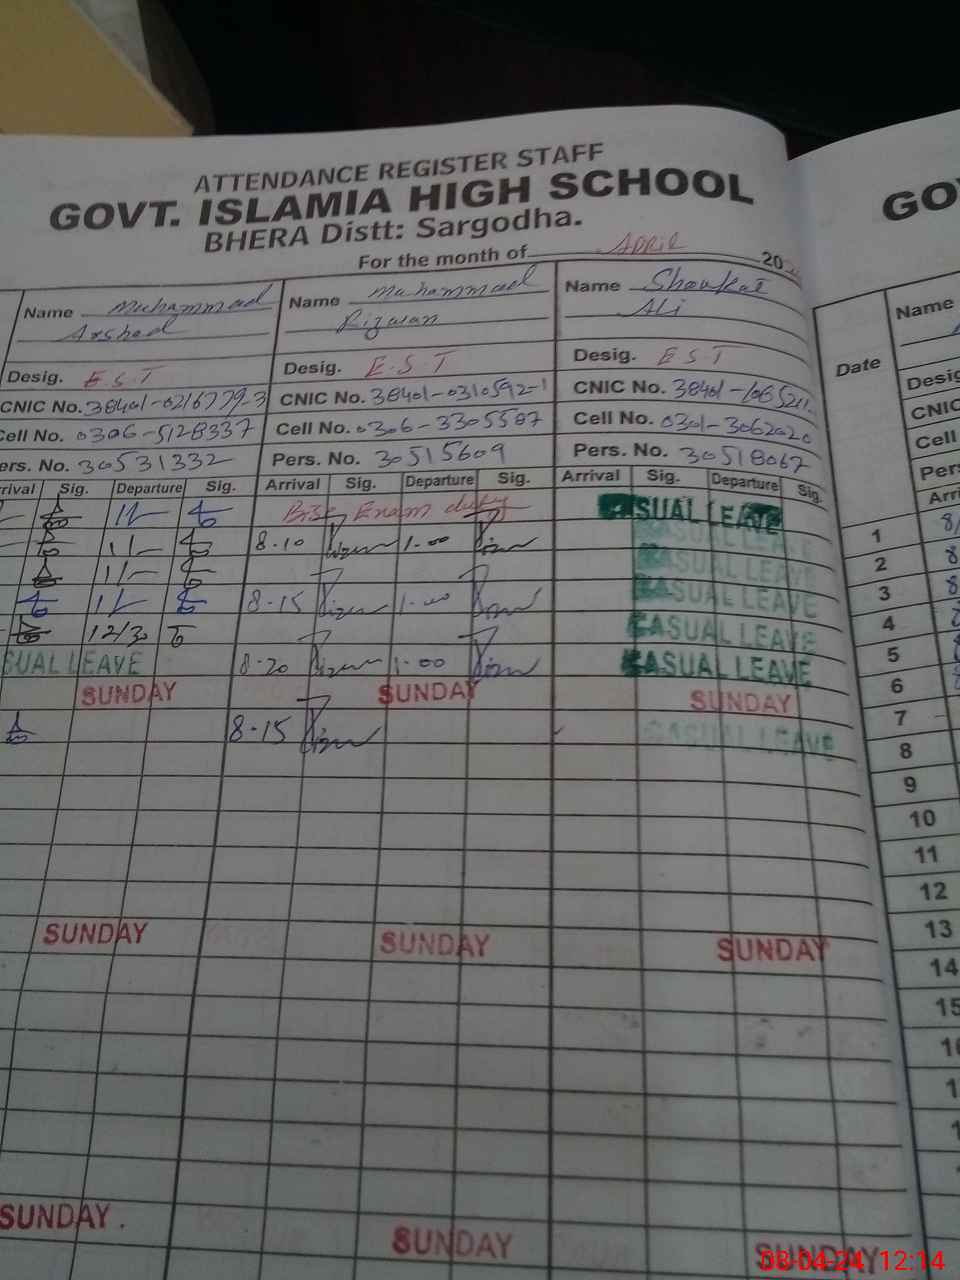 ATTENDANCE REGISTER STAFF
GOVT. ISLAMIA HIGH SCHOOL
BHERA Distt: Sargodha.
For the month of April 20
GO
Name Muhammad Name Muhammad Name Shoukat
Arshad Rizwan Ali
Name
Date
Desig. E S T Desig. E.S.T Desig. E S T
Desig
CNIC No. 38401-0216779-3 CNIC No. 38401-0310592-1 CNIC No. 38401-
CNIC
Cell No. 0306-5128337 Cell No. 0306-3305587 Cell No. 0301-3062020
Cell
ers. No. 30531332 Pers. No. 30515609 Pers. No. 30518067
Pers
rival Sig. Departure Sig. Arrival Sig. Departure Sig. Arrival Sig. Departure Sig.
Arri
1/- Bise Exam duty CASUAL LEAVE 1 8/
1/- 8-10 1-00 CASUAL LEAVE 2 8
1/- CASUAL LEAVE 3 8
1/- 8-15 1-00 CASUAL LEAVE 4
12/30 CASUAL LEAVE 5
SUAL LEAVE 8-20 1-00 CASUAL LEAVE 6
SUNDAY SUNDAY SUNDAY 7
8-15 CASUAL LEAVE 8
9
10
11
12
13
SUNDAY SUNDAY SUNDAY 14
15
SUNDAY. SUNDAY SUNDAY
08-04-24 12:14